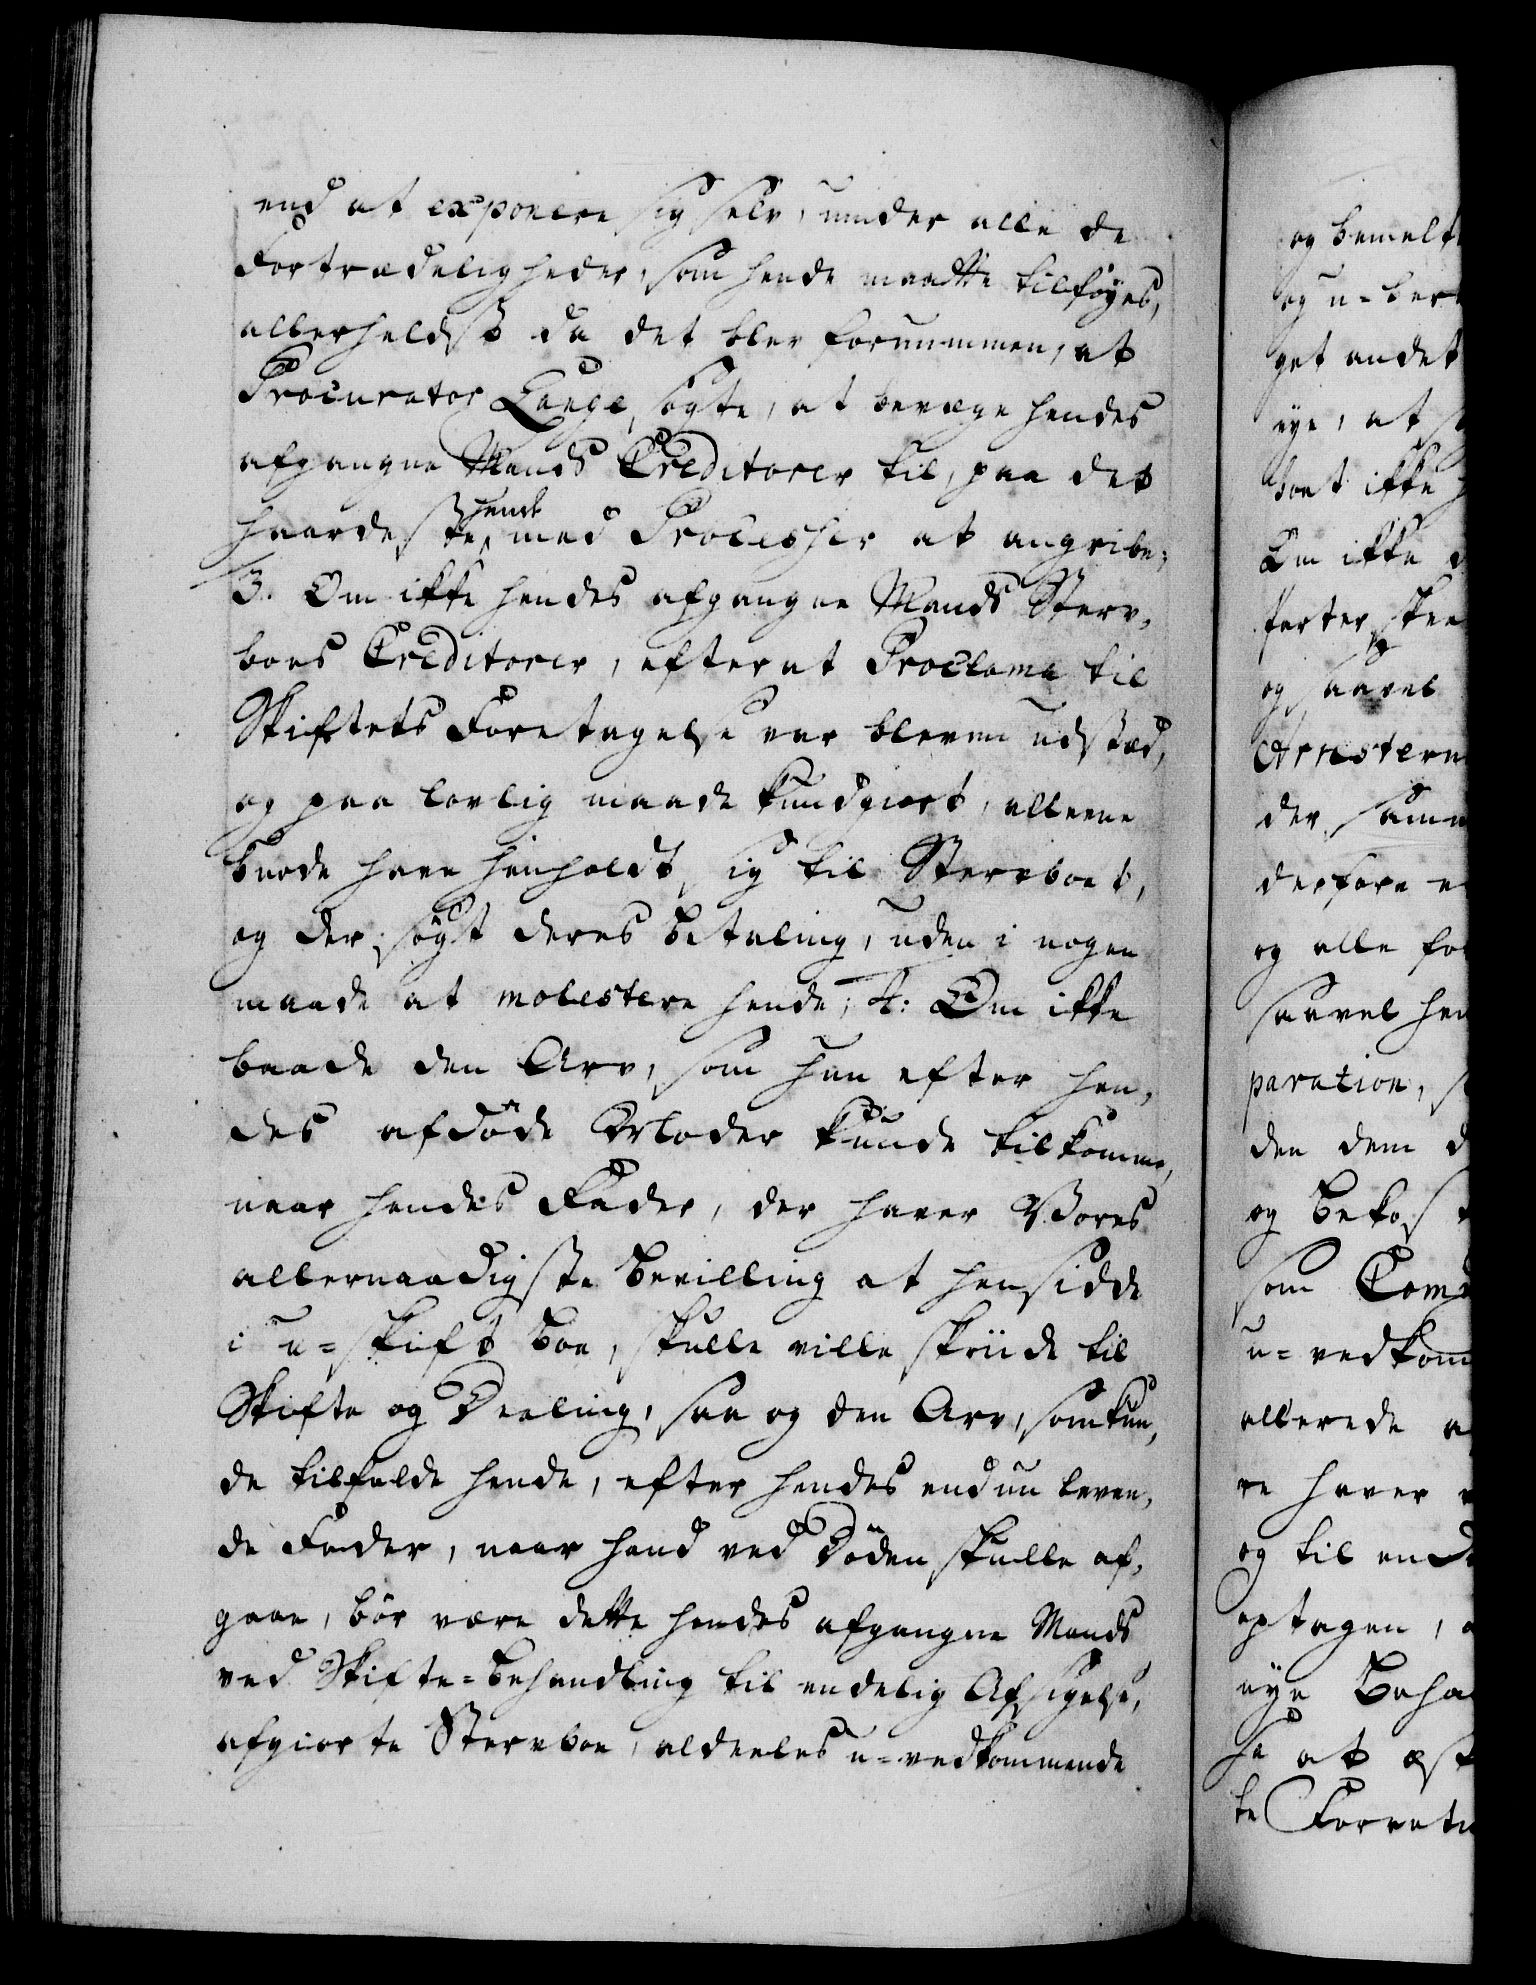 end at exponere sig selv, under alle de
Fortrædeligheder, som hende maatte tilføyes,
allerheldst da det blev fornummen, at
Procurator Lange, søgte, at bevæge hendes
afgangne Mands Creditorer til, paa det
haardeste hende med Processer at angribe;
3. Om ikke hendes afgangne Mands Sterv-
boes Creditorer, efter at Proclama til
Skiftets Foretagelse var bleven udstæd,
og paa lovlig maade kundgiort, alleene
burde have henholdt sig til Stervboet,
og der søgt deres betaling, uden i nogen
maade at molestere hende; 4: Om ikke
baade den Arv, som hun efter hen-
des afdøde Moder kunde tilkomme,
naar hendes Fader, der haver Vores
allernaadigste bevilling at hensidde
i u-skift boe, skulle ville skride til
Skifte og Deeling, saa og den Arv, som kun-
de tilfalde hende, efter hendes endnu leven-
de Fader, naar hand ved Døden skulle af-
gaae, bør være dette hendes afgangne Mands
ved Skifte-behandling til endelig Afsigelse,
afgiorte Stervboe, aldeeles u-vedkommende
og bemelt
og u-ber
get andet
eye, at
boet ikke
Om ikke
Parter skee
og saavel
Arrestern
der, samm
derfore
og alle
saavel hen
paration,
den dem
og bekost
som
u-vedkom
allerede
re haver
og til ende
optagen,
eye beha
se at
te Forret